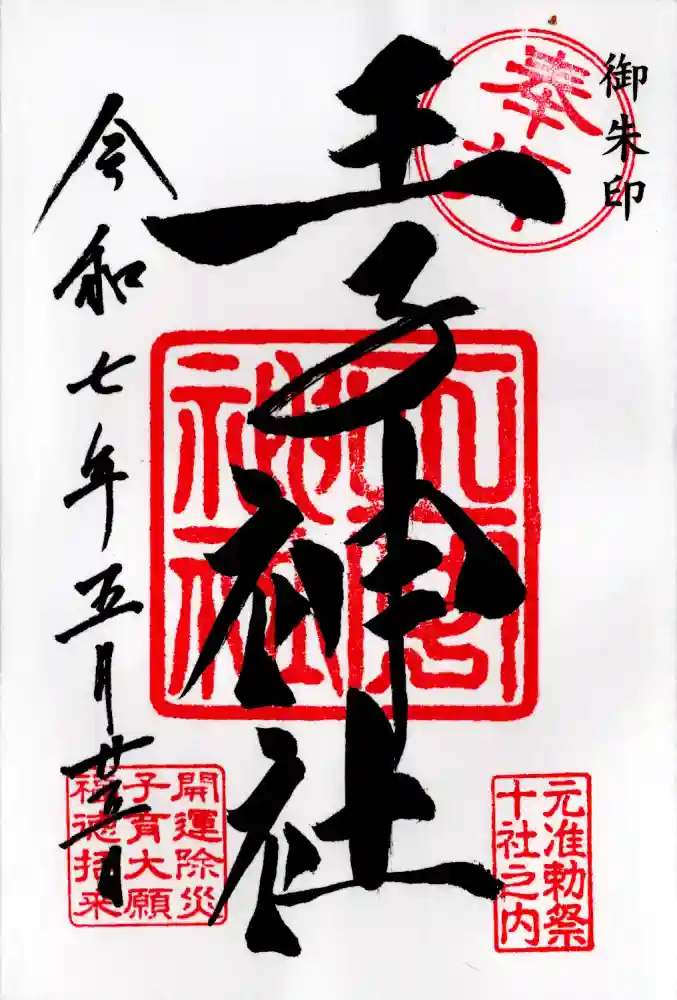 御朱印
奉拝
王子神社
神社
元准勅祭
十社之内
開運除災
子育大願
福徳招来
令和七年五月廿五日